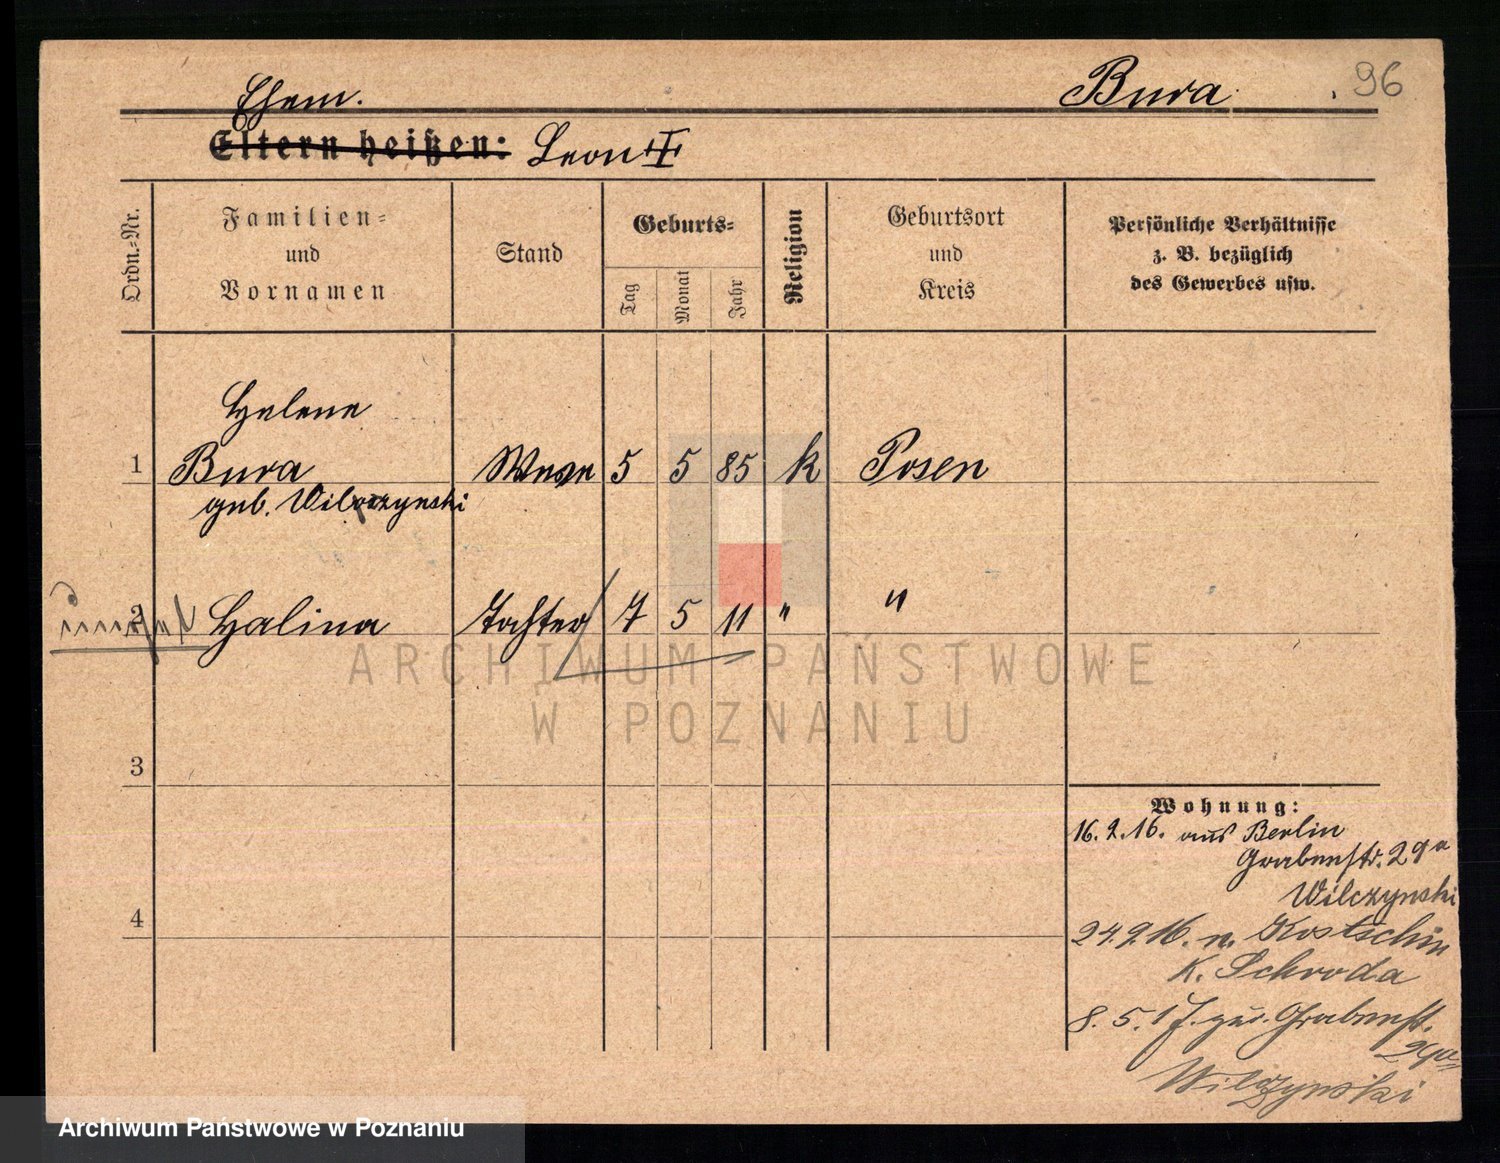 Bura 96
Ehem.
Eltern heißen: Leon †
Ordn.-Nr.
Familien-
und
Vornamen
Stand
Geburts-
Tag
Monat
Jahr
Religion
Geburtsort
und
Kreis
Persönliche Verhältnisse
z. B. bezüglich
des Gewerbes usw.
Helene
1 Bura Wwe 5 5 85 k Posen
geb. Wilczynski
2 Halina Tochter 7 5 11 " "
3
4
Wohnung:
16.2.16. aus Berlin
Grabenstr. 29a
Wilczynski
24.9.16. n. Kostschin
K. Schroda
8.5.17. zur. Grabenst.
29a
Wilczynski
ARCHIWUM PAŃSTWOWE
W POZNANIU
Archiwum Państwowe w Poznaniu